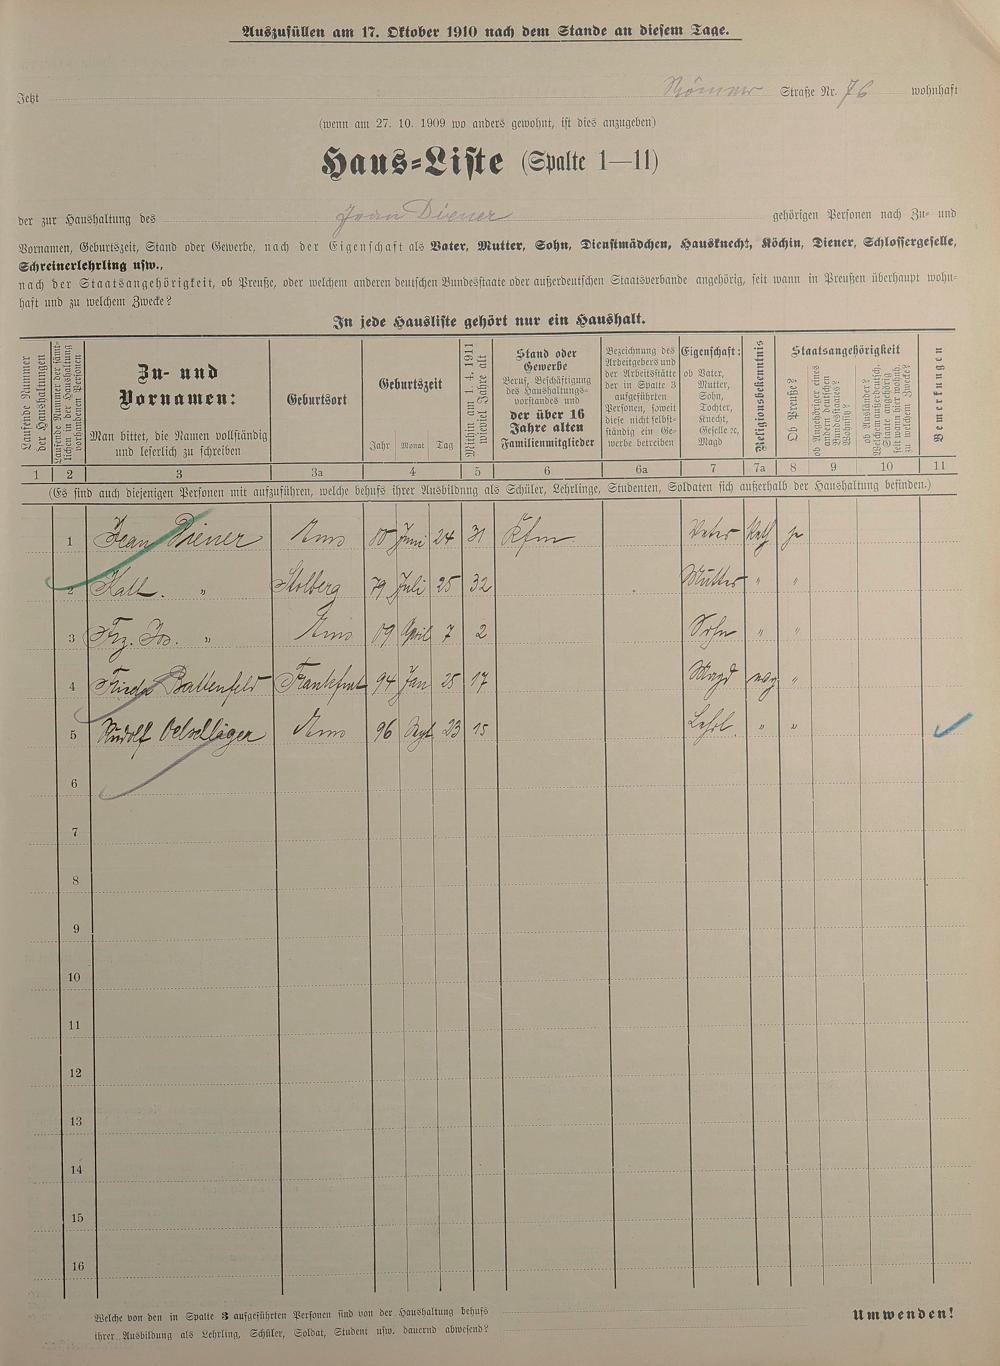 Auszufüllen am 17. Oktober 1910 nach dem Stande an diesem Tage.
Jetzt Römer Straße Nr. 76 wohnhaft
(wenn am 27. 10. 1909 wo anders gewohnt, ist dies anzugeben)
Haus-Liste (Spalte 1—11)
der zur Haushaltung des Jean Diener gehörigen Personen nach Zu- und
Vornamen, Geburtszeit, Stand oder Gewerbe, nach der Eigenschaft als Vater, Mutter, Sohn, Dienstmädchen, Hausknecht, Köchin, Diener, Schlossergeselle,
Schreinerlehrling usw.,
nach der Staatsangehörigkeit, ob Preuße, oder welchem anderen deutschen Bundesstaate oder außerdeutschen Staatsverbande angehörig, seit wann in Preußen überhaupt wohn-
haft und zu welchem Zwecke?
In jede Hausliste gehört nur ein Haushalt.
Laufende Nummer der Haushaltungen
Laufende Nummer der sämt-
lichen in der Haushaltung
vorhandenen Personen
Zu- und
Vornamen:
Man bittet, die Namen vollständig
und leserlich zu schreiben
Geburtsort
Geburtszeit
Jahr Monat Tag
Mithin am 1. 4. 1911
wieviel Jahre alt
Stand oder
Gewerbe
Beruf, Beschäftigung
des Haushaltungs-
vorstandes und
der über 16
Jahre alten
Familienmitglieder
Bezeichnung des
Arbeitgebers und
der Arbeitsstätte
der in Spalte 3
aufgeführten
Personen, soweit
diese nicht selbst-
ständig ein Ge-
werbe betreiben
Eigenschaft:
ob Vater,
Mutter,
Sohn,
Tochter,
Knecht,
Geselle ꝛc,
Magd
Religionsbekenntnis
Staatsangehörigkeit
Ob Preuße?
ob Angehöriger eines
andern deutschen
Bundesstaates?
Wohnsitz?
ob Ausländer?
Welchem außerdeutsch.
Staate angehörig
seit wann hier wohnh.
zu welchem Zwecke?
Bemerkungen
1 2 3 3a 4 5 6 6a 7 7a 8 9 10 11
(Es sind auch diejenigen Personen mit aufzuführen, welche behufs ihrer Ausbildung als Schüler, Lehrlinge, Studenten, Soldaten sich außerhalb der Haushaltung befinden.)
1 Jean Diener Ems 80 Juni 24 31 Kfm Vater Kath ja
2 Kath. " Stolberg 79 Juli 25 32 Mutter " "
3 Frz. Jos. " Ems 09 April 7 2 Sohn " "
4 Frieda Battenfeld Frankfurt 94 Jan 25 17 Magd evg "
5 Rudolf Oelschläger Ems 96 Sept 23 15 Lehrl. " "
6
7
8
9
10
11
12
13
14
15
16
Welche von den in Spalte 3 aufgeführten Personen sind von der Haushaltung behufs
ihrer Ausbildung als Lehrling, Schüler, Soldat, Student usw. dauernd abwesend?
Umwenden!